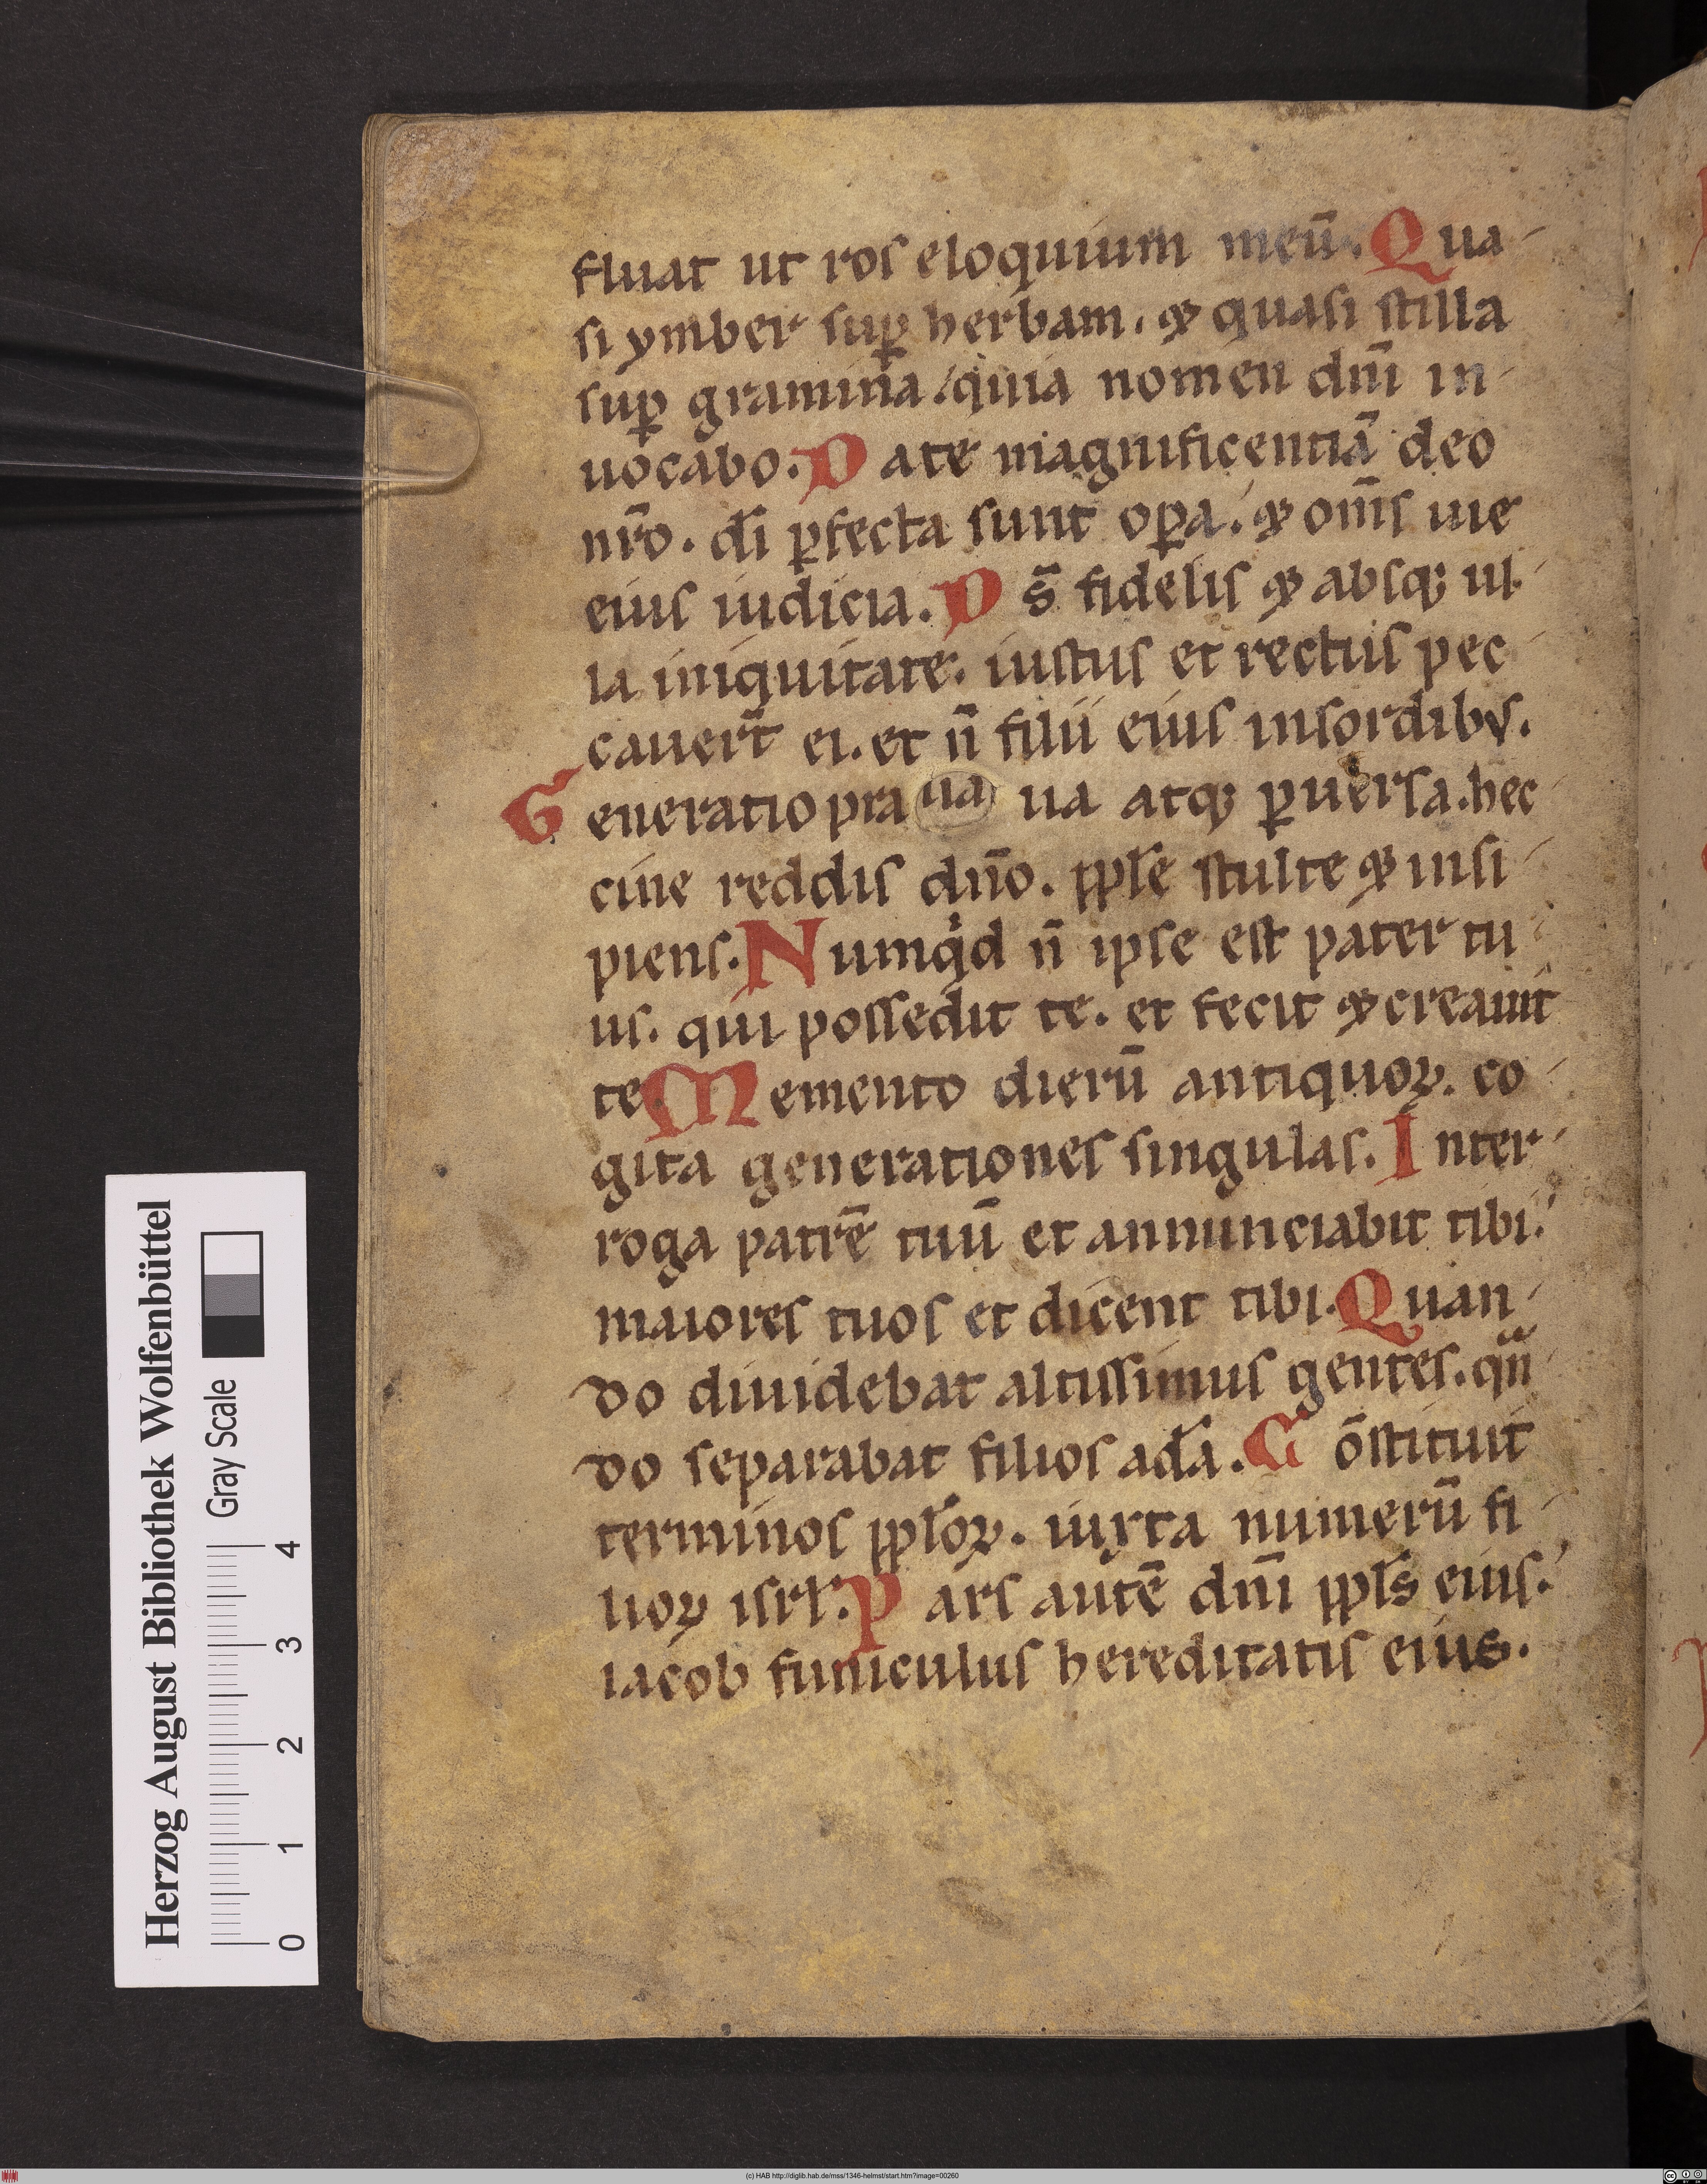 fluat ut ros eloquium meū. Qua-
si ymber suꝑ herbam. ⁊ quasi stilla
suꝑ gramina. quia nomen dn̄i in-
uocabo. Date magnificentiā deo
nr̄o. dī ꝑfecta sunt oꝑa. ⁊ om̄s uie
eius iudicia. D s̄ fidelis ⁊ absqꝫ ul-
la iniquitate. iustus et rectus pec-
cauert̄ ei. et n̄ filii eius insordibꝰ.
Generatio praua ua atqꝫ ꝑuersa. hec-
cine reddis dn̄o. pplē stulte ⁊ insi-
piens. Numqͥd n̄ ipse est pater tu-
us. qui possedit te. et fecit ⁊ creauit
te. Memento dierū antiquoꝝ. co-
gita generationes singulas. Inter-
roga patrē tuū et annunciabit tibi.
maiores tuos et dicent tibi. Quan-
do diuidebat altissimus gentes. qn̄-
do separabat filios adā. Cōstituit
terminos ppl̄oꝝ. iuxta numerū fi-
lioꝝ isrl̄. Pars autē dn̄i ppl̄s eius.
iacob funiculus hereditatis eius.
Herzog August Bibliothek Wolfenbüttel
Gray Scale
0 1 2 3 4
(c) HAB http://diglib.hab.de/mss/1346-helmst/start.htm?image=00260